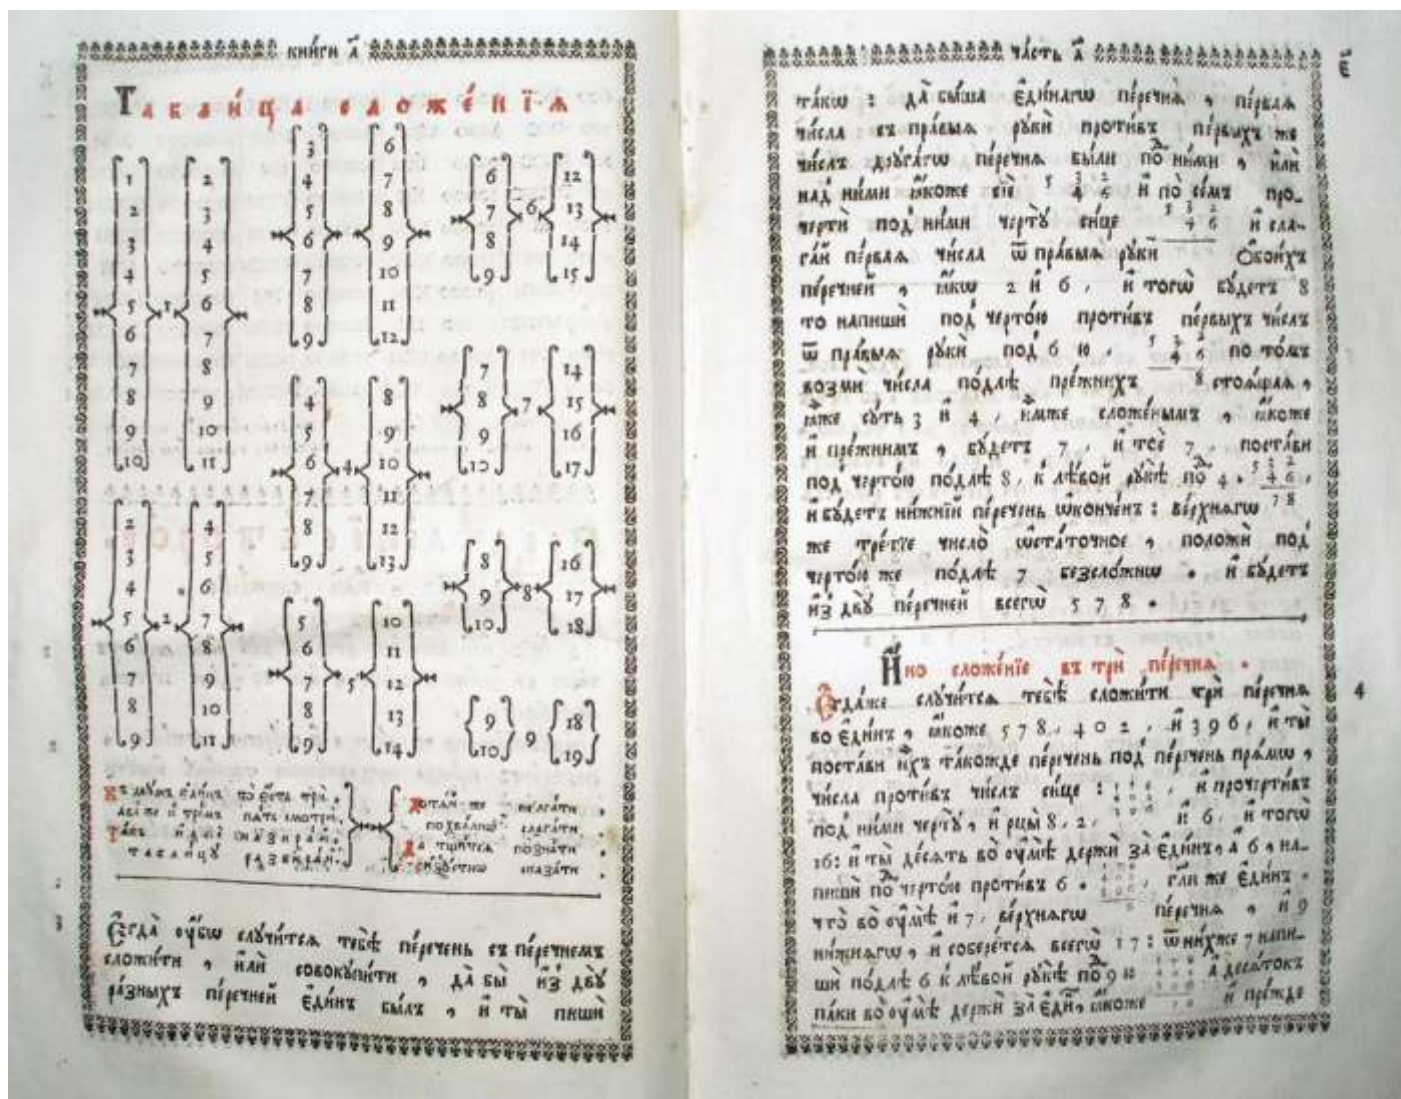 КНИ́ГИ А҃
Табли́ца сложе́нїѧ
1 2 3 4 5 6 7 8 9 10
1
2 3 4 5 6 7 8 9 10 11
2 3 4 5 6 7 8 9
2
4 5 6 7 8 9 10 11
3 4 5 6 7 8 9
6 7 8 9 10 11 12
4 5 6 7 8 9
4
8 9 10 11 12 13
5 6 7 8 9
5
10 11 12 13 14
6 7 8 9
6
12 13 14 15
7 8 9 10
7
14 15 16 17
8 9 10
8
16 17 18
9 10
9
18 19
Къ двумъ єди́нъ то є҆́сть трѝ,
два́ же и҆ три́мъ пѧть смотрѝ.
Та́къ и҆ всѐ назира́й,
табли́цу разбира́й.
Хотѧ́й же не лга́ти
похва́лнѡ слага́ти
Да тщи́тсѧ позна́ти
и҆зꙋ́стнѡ сказа́ти
3
Є҆гда̀ ᲂу҆́бѡ случи́тсѧ тебѣ̀ пе́речень съ пе́речнемъ
сложи́ти, и҆лѝ совокупи́ти, да бы̀ и҆з̾ двꙋ̀
ра́зныхъ пе́речней є҆ди́нъ бы́лъ, и҆ ты̀ пишѝ
ча́сть А҃
є҃
та́кѡ: да̀ бы́ша є҆ди́нагѡ пе́речнѧ, пе́рваѧ
чи́сла съ пра́выѧ рꙋкѝ проти́въ пе́рвыхъ же
чи́слъ дрꙋга́гѡ пе́речнѧ бы́ли под̾ ни́ми, и҆лѝ
над̾ ни́ми ꙗ҆́коже сїѐ 5 3 2 4 6 и҆ по се́мъ про-
чертѝ под̾ ни́ми черту̀ си́це 5 3 2 4 6 и҆ сла-
га́й пе́рваѧ чи́сла ѿ пра́выѧ рꙋкѝ ѻ҆бои́хъ
пе́речней, ꙗ҆́кѡ 2 и҆ 6, и҆ тогѡ̀ бꙋ́детъ 8
то напишѝ под̾ черто́ю проти́въ пе́рвыхъ чи́слъ
ѿ пра́выѧ рꙋкѝ под̾ 6 ю, 5 3 2 4 6 8 по то́мъ
возмѝ чи́сла по́длѣ пре́жнихъ стоѧ́щаѧ,
ꙗ҆̀же сꙋ́ть 3 и҆ 4, и҆̀мже сложе́нымъ, ꙗ҆́коже
и҆ пре́жнимъ, бꙋ́детъ 7, и҆ тоѐ 7, поста́ви
под̾ черто́ю по́длѣ 8, к̾ лѣ́вой рꙋкѣ̀ под̾ 4. 5 3 2 4 6 7 8,
и҆ бꙋ́детъ ни́жнїй пе́речень ѡ҆конче́нъ: ве́рхнѧгѡ
же тре́тїе число̀ ѡ҆ста́точное, положѝ под̾
черто́ю же по́длѣ 7 безсло́жнѡ. и҆ бꙋ́детъ
и҆з̾ двꙋ̀ пе́речней всегѡ̀ 5 7 8.
И҆́но сложе́нїе въ трѝ пе́речнѧ.
Є҆гда́же случи́тсѧ тебѣ̀ сложи́ти трѝ пе́речнѧ 4
во є҆ди́нъ, ꙗ҆́коже 5 7 8, 4 0 2, и҆ 3 9 6, и҆ ты̀
поста́ви и҆́хъ та́кожде пе́речень под̾ пе́речень прѧ́мѡ,
чи́сла проти́въ чи́слъ си́це: и҆ прочерти́въ
под̾ ни́ми черту̀, и҆ рцы̀ 8, 2, и҆ 6, и҆ тогѡ̀
16: и҆ ты̀ де́сѧть во ᲂу҆мѣ̀ держѝ за̀ є҆ди́нъ, а҆ 6, на-
пишѝ под̾ черто́ю проти́въ 6. гл҃и же є҆ди́нъ.
что̀ во ᲂу҆мѣ̀ и҆ 7, ве́рхнѧгѡ пе́речнѧ, и҆ 9
ни́жнѧгѡ, и҆ собере́тсѧ всегѡ̀ 17: ѿ ни́хже 7 напи-
шѝ по́длѣ 6 к̾ лѣ́вой рꙋкѣ̀ под̾ 9 ю а҆ десѧ́токъ
па́ки во ᲂу҆мѣ̀ держѝ за̀ є҆ди́н, ꙗ҆́коже и҆ пре́жде